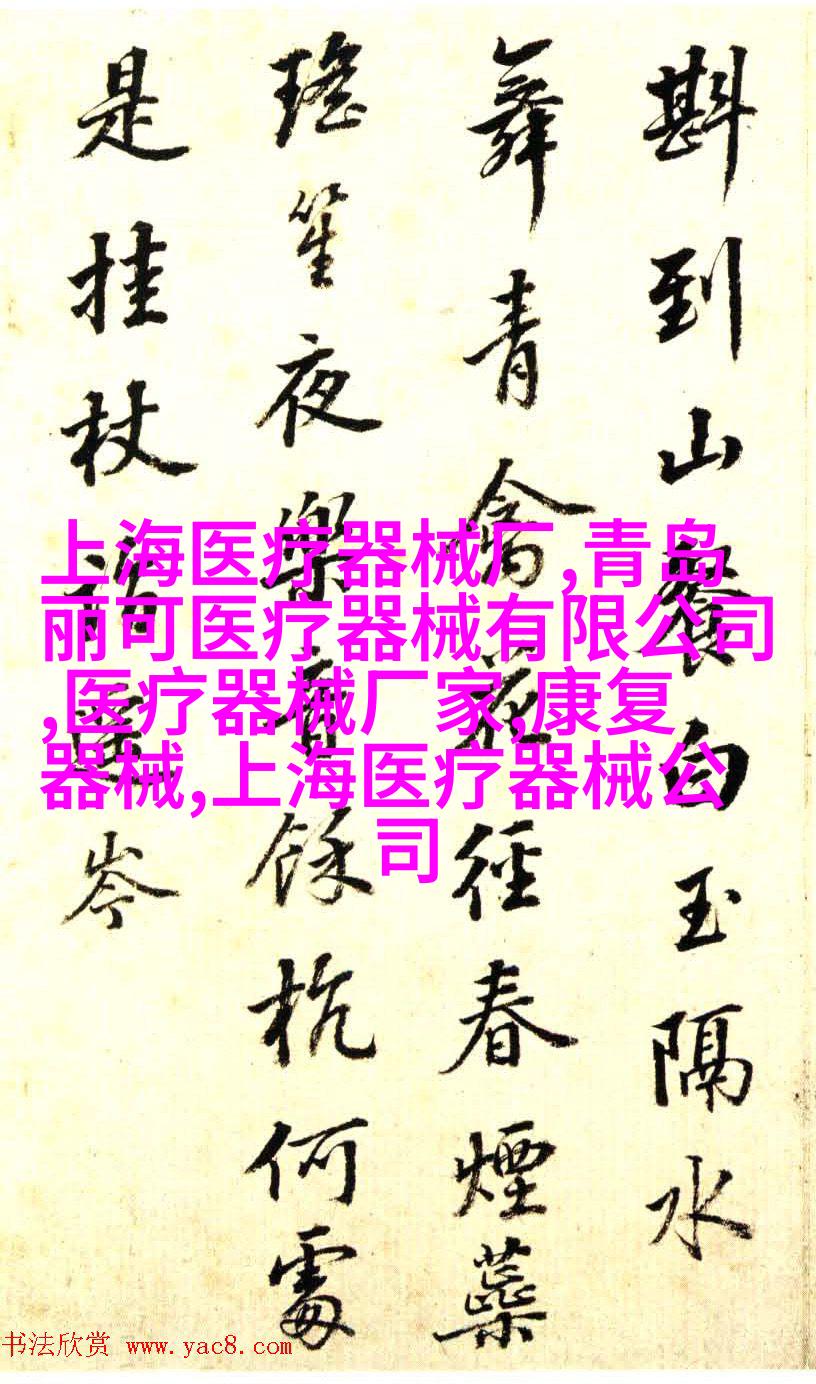 斟到山餐白玉隔水
舞青禽花径春煙蘂
瑤笙夜樂音餘杭何處
是挂杖遥岑
上海医疗器械厂,青岛
丽可医疗器械有限公司
,医疗器械厂家,康复
器械,上海医疗器械公
司
书法欣赏 www.yac8.com